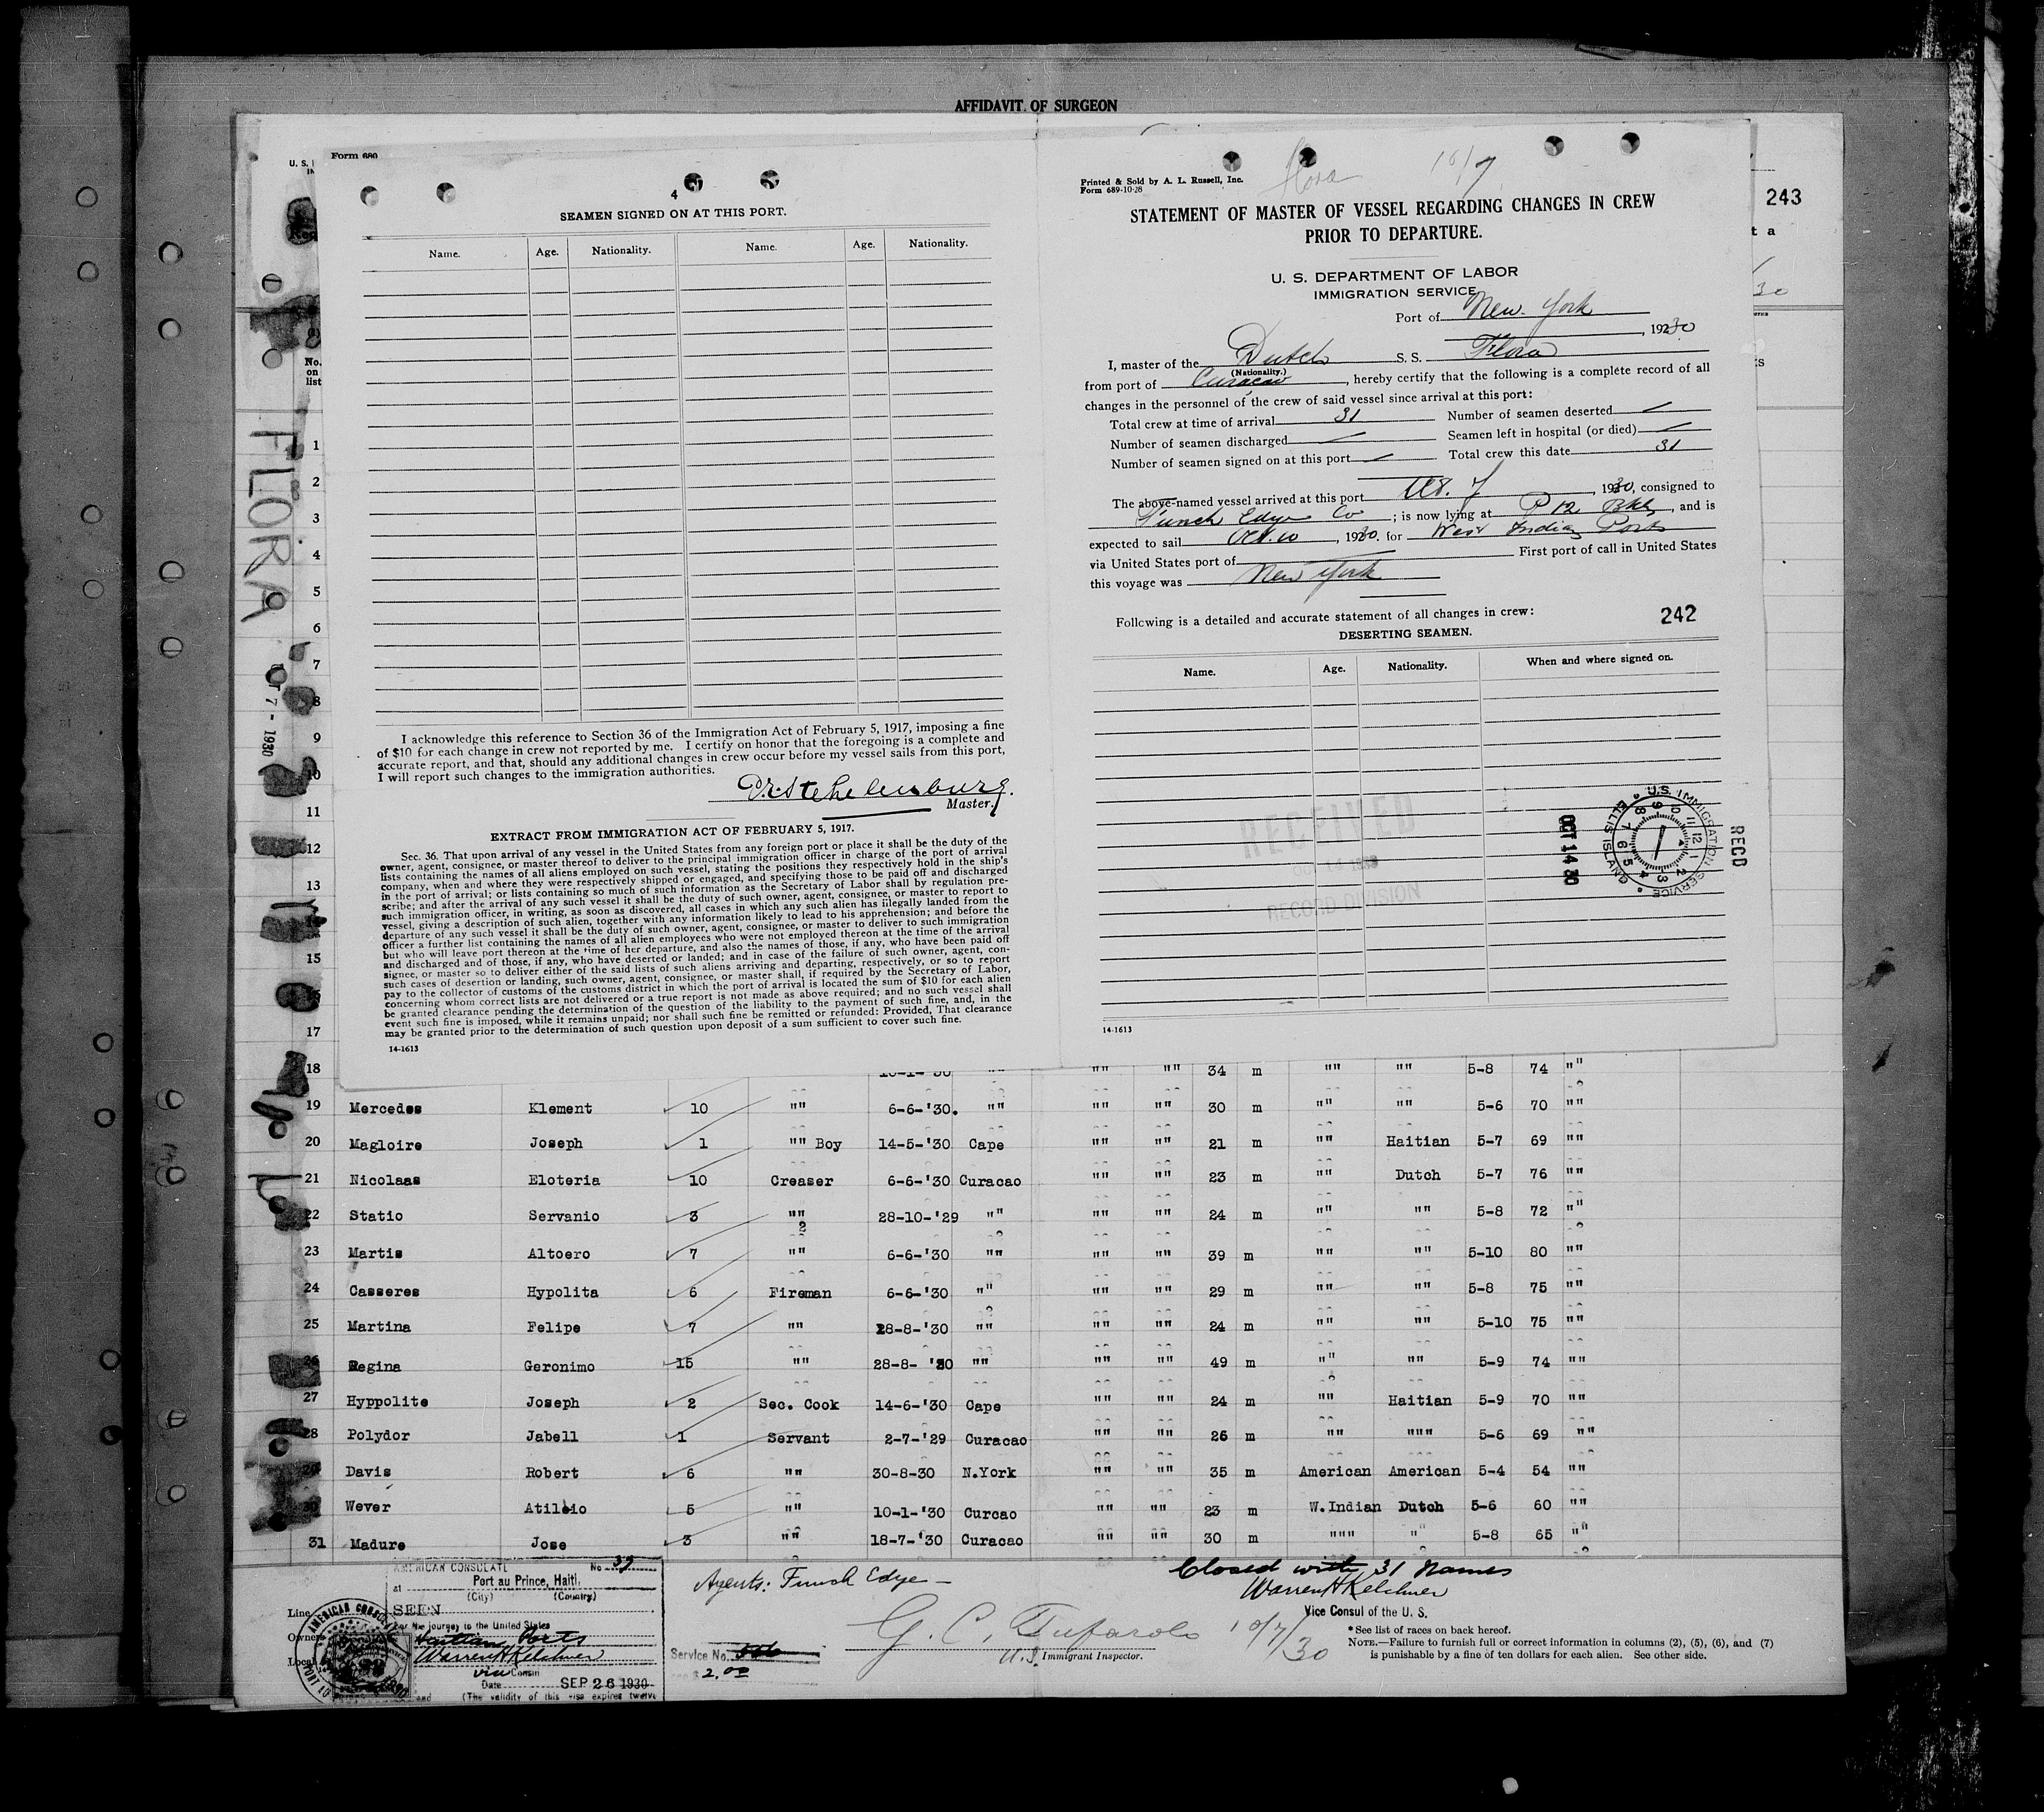 AFFIDAVIT OF SURGEON
U. S.
Form 680
4
SEAMEN SIGNED ON AT THIS PORT.
Name. Age. Nationality. Name. Age. Nationality.
I acknowledge this reference to Section 36 of the Immigration Act of February 5, 1917, imposing a fine
of $10 for each change in crew not reported by me. I certify on honor that the foregoing is a complete and
accurate report, and that, should any additional changes in crew occur before my vessel sails from this port,
I will report such changes to the immigration authorities.
Master.
EXTRACT FROM IMMIGRATION ACT OF FEBRUARY 5, 1917.
Sec. 36. That upon arrival of any vessel in the United States from any foreign port or place it shall be the duty of the
owner, agent, consignee, or master thereof to deliver to the principal immigration officer in charge of the port of arrival
lists containing the names of all aliens employed on such vessel, stating the positions they respectively hold in the ship's
company, when and where they were respectively shipped or engaged, and specifying those to be paid off and discharged
in the port of arrival; or lists containing so much of such information as the Secretary of Labor shall by regulation pre-
scribe; and after the arrival of any such vessel it shall be the duty of such owner, agent, consignee, or master to report to
such immigration officer, in writing, as soon as discovered, all cases in which any such alien has illegally landed from the
vessel, giving a description of such alien, together with any information likely to lead to his apprehension; and before the
departure of any such vessel it shall be the duty of such owner, agent, consignee, or master to deliver to such immigration
officer a further list containing the names of all alien employees who were not employed thereon at the time of the arrival
but who will leave port thereon at the time of her departure, and also the names of those, if any, who have been paid off
and discharged and of those, if any, who have deserted or landed; and in case of the failure of such owner, agent, con-
signee, or master so to deliver either of the said lists of such aliens arriving and departing, respectively, or so to report
such cases of desertion or landing, such owner, agent, consignee, or master shall, if required by the Secretary of Labor,
pay to the collector of customs of the customs district in which the port of arrival is located the sum of $10 for each alien
concerning whom correct lists are not delivered or a true report is not made as above required; and no such vessel shall
be granted clearance pending the determination of the question of the liability to the payment of such fine, and, in the
event such fine is imposed, while it remains unpaid; nor shall such fine be remitted or refunded: Provided, That clearance
may be granted prior to the determination of such question upon deposit of a sum sufficient to cover such fine.
14-1613
Flora 10/7
Printed & Sold by A. L. Russell, Inc.
Form 689-10-28
STATEMENT OF MASTER OF VESSEL REGARDING CHANGES IN CREW
PRIOR TO DEPARTURE.
U. S. DEPARTMENT OF LABOR
IMMIGRATION SERVICE
Port of New York
, 1930
I, master of the Dutch S. S. Flora
(Nationality.)
from port of Curacao, hereby certify that the following is a complete record of all
changes in the personnel of the crew of said vessel since arrival at this port:
Total crew at time of arrival 31 Number of seamen deserted
Number of seamen discharged Seamen left in hospital (or died)
Number of seamen signed on at this port Total crew this date 31
The above-named vessel arrived at this port Oct. 7, 1930, consigned to
Funch Edye Co; is now lying at P 12 Bkly, and is
expected to sail Oct. 10, 1930. for West Indian Ports
via United States port of First port of call in United States
this voyage was New York
Following is a detailed and accurate statement of all changes in crew:
242
DESERTING SEAMEN.
Name. Age. Nationality. When and where signed on.
RECEIVED
OCT 14 1930
RECORD DIVISION
OCT 14 30
U.S. IMMIGRATION SERVICE ELLIS ISLAND
RECD
14-1613
243
t a
30
No.
on
list
FLORA
7 - 1930
1
2
3
4
5
6
7
8
9
10
11
12
13
15
17
18 "" "" 34 m "" "" 5-8 74 ""
19 Mercedes Klement 10 "" 6-6-'30. "" "" "" 30 m "" "" 5-6 70 ""
20 Magloire Joseph 1 "" Boy 14-5-'30 Cape "" "" 21 m "" Haitian 5-7 69 ""
21 Nicolaas Eloteria 10 Greaser 6-6-'30 Curacao "" "" 23 m "" Dutch 5-7 76 ""
22 Statio Servanio 3 "" 28-10-'29 "" "" "" 24 m "" "" 5-8 72 ""
23 Martis Altoero 7 "" 6-6-'30 "" "" "" 39 m "" "" 5-10 80 ""
24 Casseres Hypolita 6 Fireman 6-6-'30 "" "" "" 29 m "" "" 5-8 75 ""
25 Martina Felipe 7 "" 28-8-'30 "" "" "" 24 m "" "" 5-10 75 ""
26 Regina Geronimo 15 "" 28-8- '30 "" "" "" 49 m "" "" 5-9 74 ""
27 Hyppolite Joseph 2 Sec. Cook 14-6-'30 Cape "" "" 24 m "" Haitian 5-9 70 ""
28 Polydor Jabell 1 Servant 2-7-'29 Curacao "" "" 26 m "" """ 5-6 69 ""
29 Davis Robert 6 "" 30-8-30 N.York "" "" 35 m American American 5-4 54 ""
30 Wever Atilio 5 "" 10-1-'30 Curcao "" "" 23 m W.Indian Dutch 5-6 60 ""
31 Madure Jose 3 "" 18-7-'30 Curacao "" "" 30 m """ " 5-8 65 ""
AMERICAN CONSULATE No. 37
at Port au Prince, Haiti.
(City) (Country)
SEEN
For the journey to the United States
Haitian Ports
Warren H Kelchner
Vice Consul
Date SEP 26 1930
(The validity of this visa expires twelve
Line
Owners
Local
Agents: Funch Edye
Service No.
$2.00
G. C. Tufarolo 10/7/30
U.S. Immigrant Inspector.
Closed with 31 Names
Warren H Kelchner
Vice Consul of the U. S.
* See list of races on back hereof.
NOTE.—Failure to furnish full or correct information in columns (2), (5), (6), and (7)
is punishable by a fine of ten dollars for each alien. See other side.